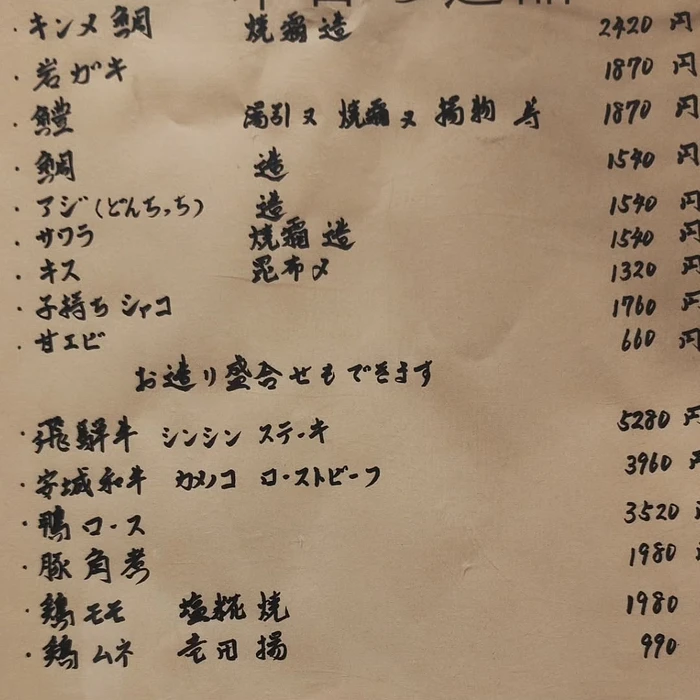 ・キンメ鯛 焼霜造 2420円
・岩ガキ 1870円
・鱧 湯引又焼霜又揚物等 1870円
・鯛 造 1540円
・アジ(どんちっち) 造 1540円
・サワラ 焼霜造 1540円
・キス 昆布〆 1320円
・子持ちシャコ 1760円
・甘エビ 660円
お造り盛合せもできます
・飛騨牛 シンシン ステーキ 5280円
・安城和牛 カメノコ ローストビーフ 3960円
・鴨ロース 3520
・豚角煮 1980
・鶏モモ 塩糀焼 1980
・鶏ムネ 竜田揚 990